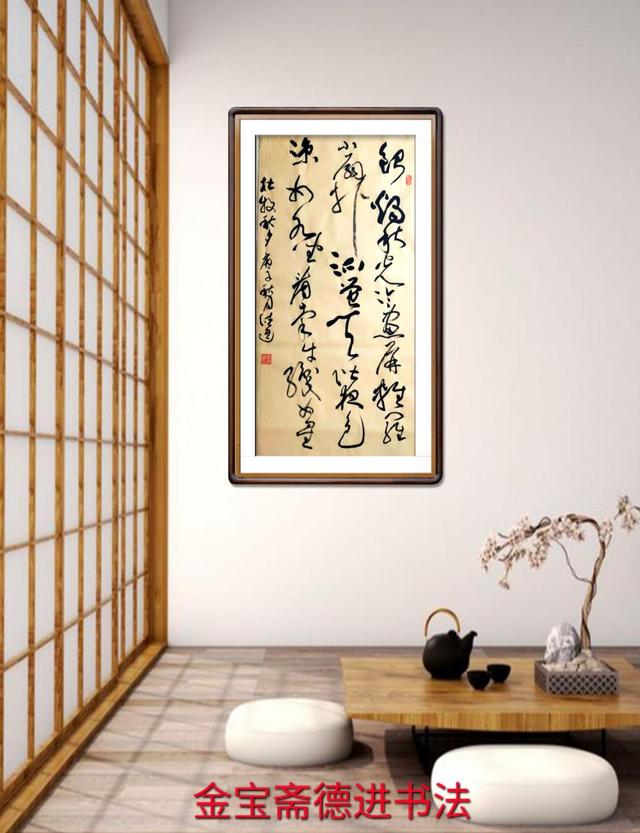 銀燭秋光冷畫屏輕羅
小扇扑流萤天阶夜色
凉如水看牵牛織女星
杜牧秋夕庚子秋月德进
金宝斋德进书法